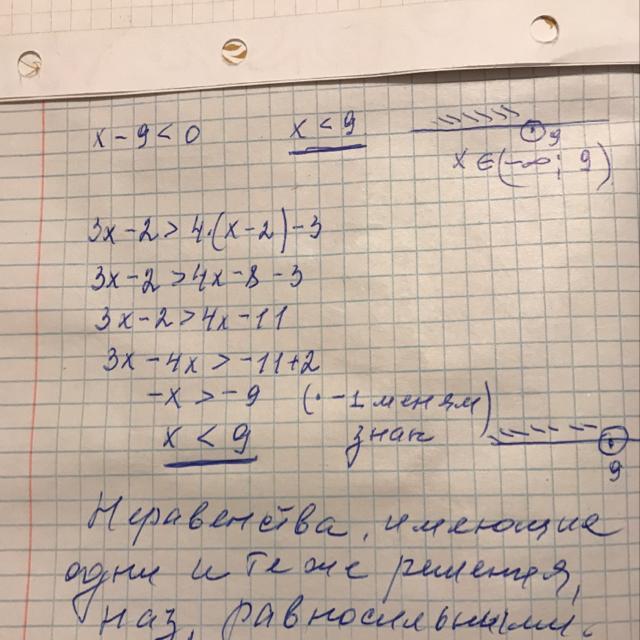 x - 9 < 0    x < 9    9
x ∈ (-∞; 9)
3x - 2 > 4·(x - 2) - 3
3x - 2 > 4x - 8 - 3
3x - 2 > 4x - 11
3x - 4x > -11 + 2
-x > -9    (· -1 меняем)
x < 9    знак    9
Неравенства, имеющие
одни и те же решения,
наз. равносильными.